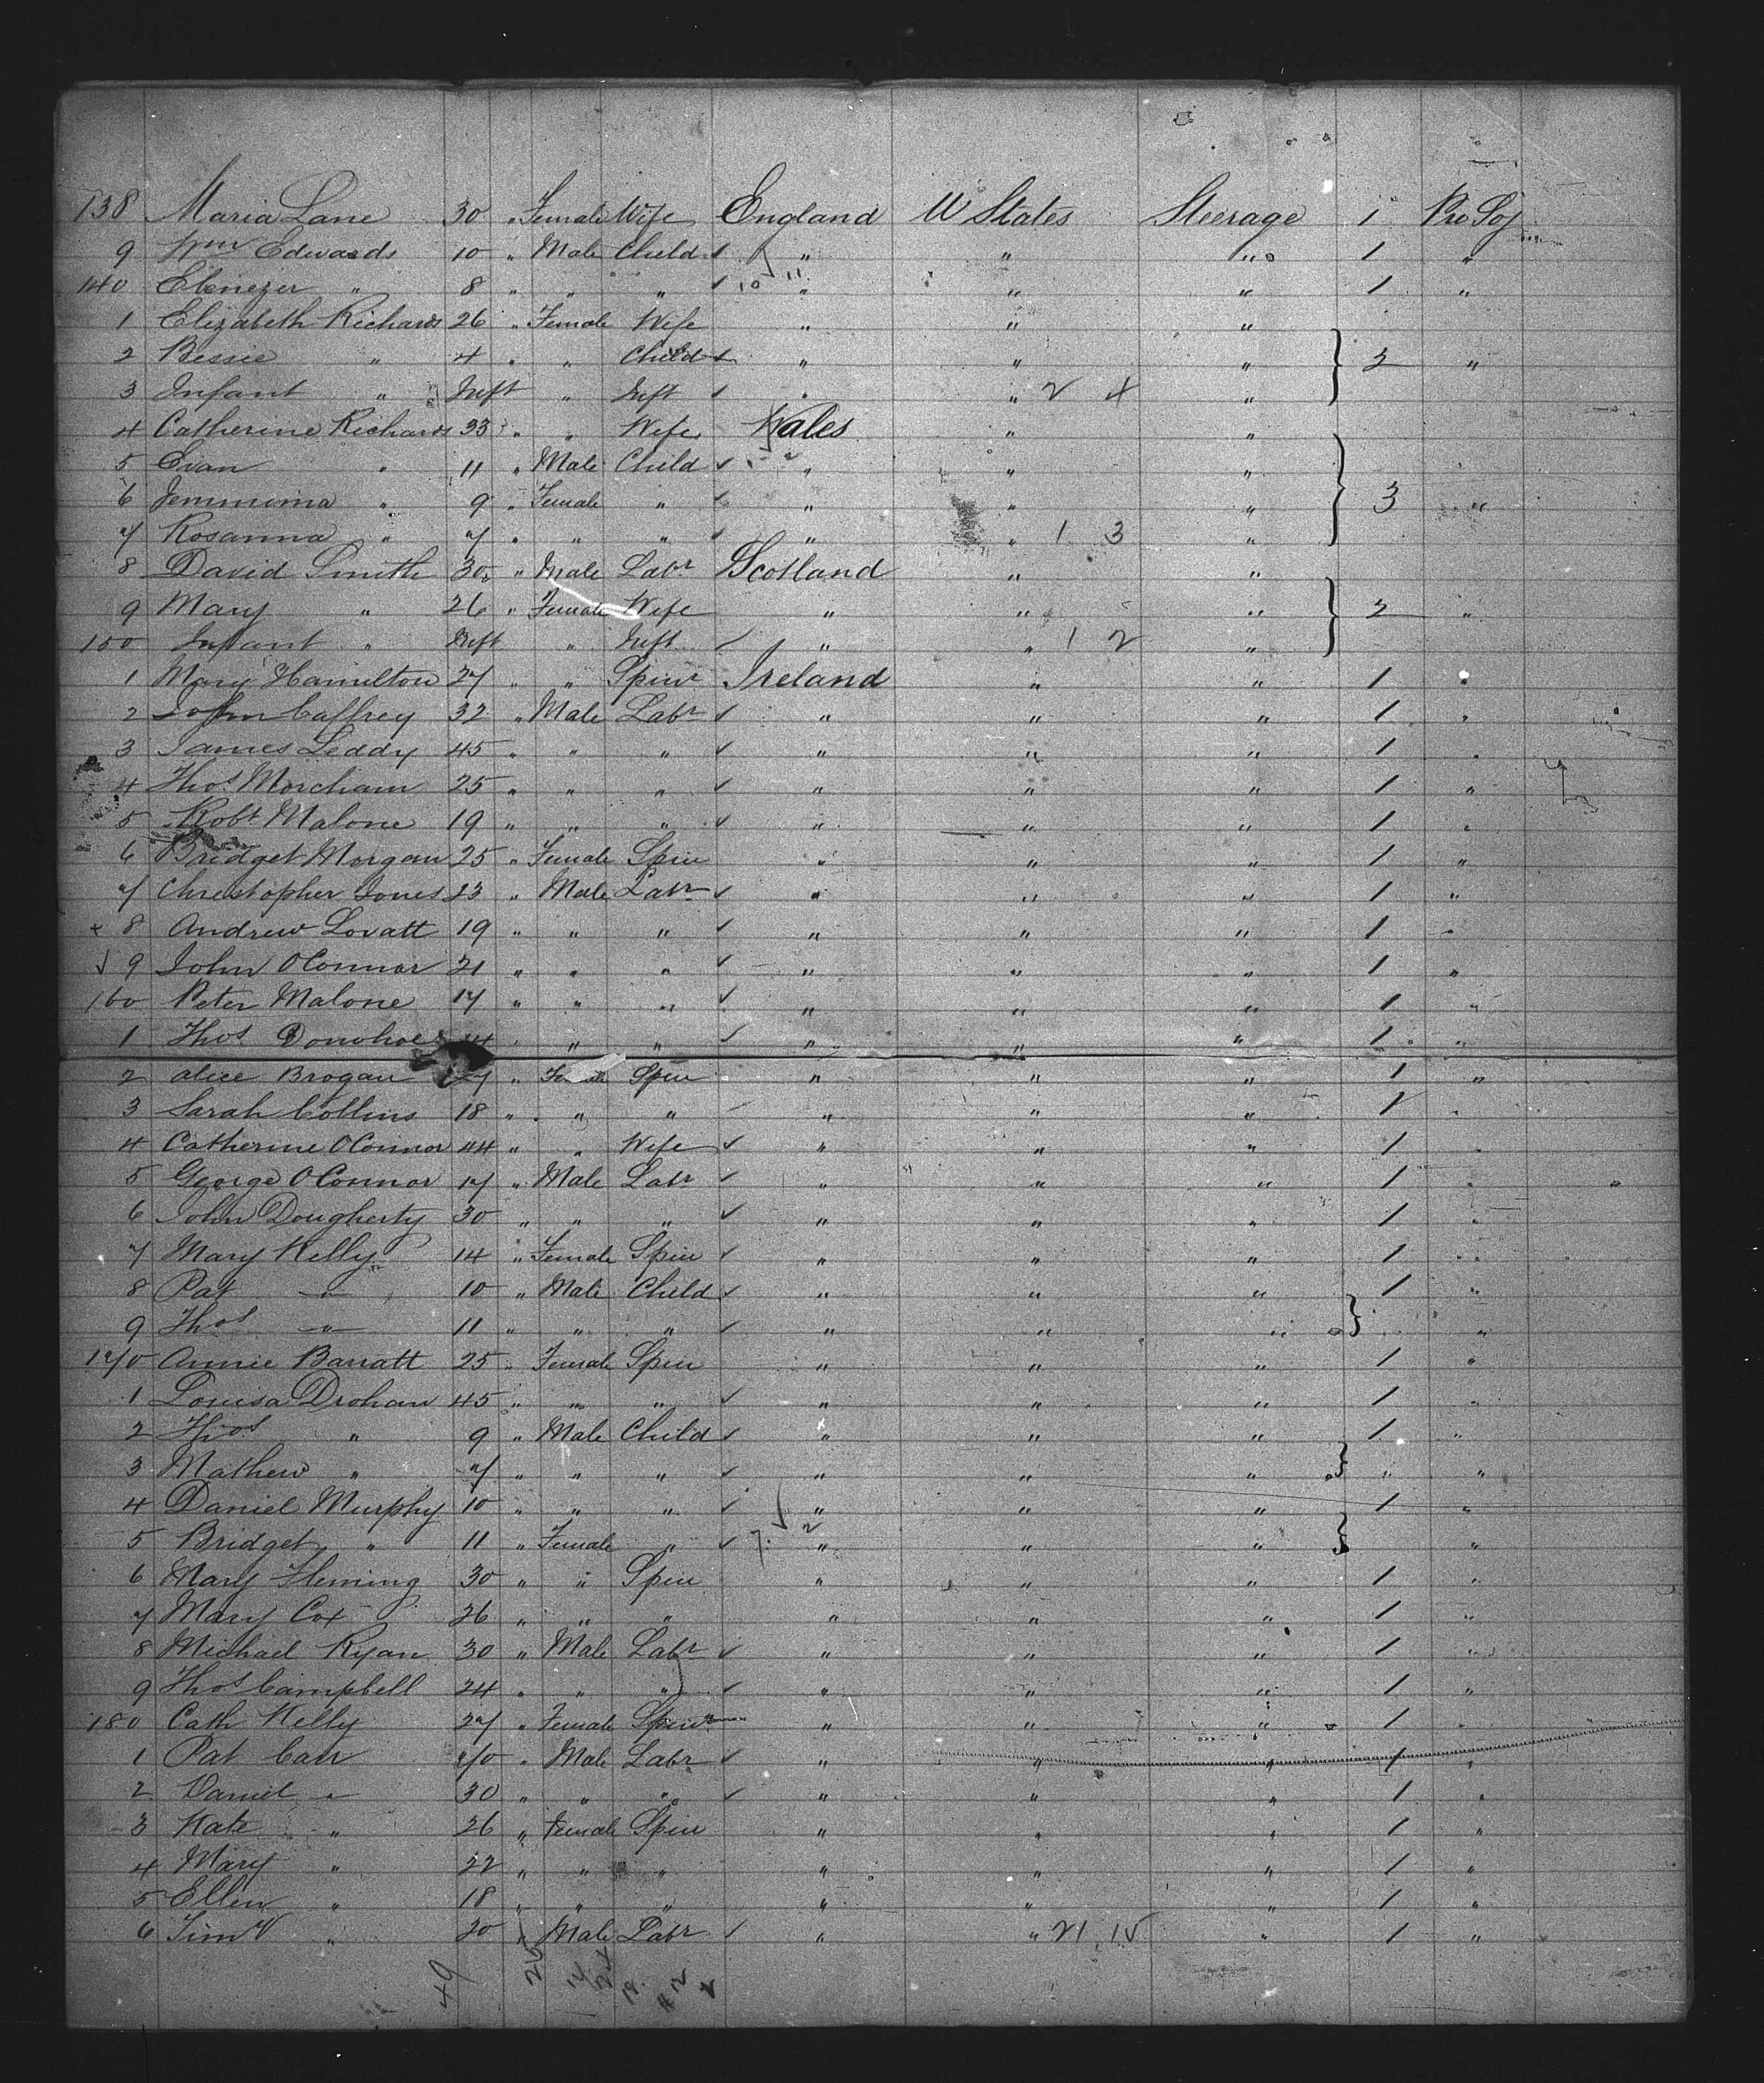 138 Maria Lane 30 " Female Wife England U States Steerage 1 Pro Soj
9 Wm Edwards 10 " Male Child " " " 1 "
140 Ebenezer " 8 " " " " " " 1 "
1 Elizabeth Richards 26 " Female Wife " " "
2 Bessie " 4 " " Child " " " 2 "
3 Infant " Inft " Inft " " 2 4 "
4 Catherine Richards 33 " " Wife Wales " "
5 Evan " 11 " Male Child " " "
6 Jemmima " 9 " Female " " " " 3 "
7 Rosanna " 7 " " " " " 1 3 "
8 David Smith 30 " Male Labr Scotland " "
9 Mary " 26 " Female Wife " " " 2 "
150 Infant " Inft " Inft " " 1 2 "
1 Mary Hamilton 27 " " Spinr Ireland " " 1 "
2 John Caffrey 32 " Male Labr " " " 1 "
3 James Leddy 45 " " " " " " 1 "
4 Thos Morcham 25 " " " " " " 1 "
5 Robt Malone 19 " " " " " " 1 "
6 Bridget Morgan 25 " Female Spin " " " 1 "
7 Christopher Jones 23 " Male Labr " " " 1 "
8 Andrew Lovatt 19 " " " " " " 1 "
9 John OConnor 21 " " " " " " 1 "
160 Peter Malone 17 " " " " " " 1 "
1 Thos Donohoe " " " " " 1 "
2 Alice Brogan " Female Spin " " " 1 "
3 Sarah Collins 18 " " " " " " 1 "
4 Catherine OConnor 44 " " Wife " " " 1 "
5 George OConnor 17 " Male Labr " " " 1 "
6 John Dougherty 30 " " " " " " 1 "
7 Mary Kelly 14 " Female Spin " " " 1 "
8 Pat " 10 " Male Child " " " 1 "
9 Thos " 11 " " " " " " "
170 Annie Barratt 25 " Female Spin " " " 1 "
1 Louisa Drohan 45 " " " " " " 1 "
2 Thos " 9 " Male Child " " " 1 "
3 Mathew " 7 " " " " " " " "
4 Daniel Murphy 10 " " " " " " 1 "
5 Bridget " 11 " Female " " " " "
6 Mary Fleming 30 " " Spin " " " 1 "
7 Mary Cox 26 " " " " " " 1 "
8 Michael Ryan 30 " Male Labr " " " 1 "
9 Thos Campbell 24 " " " " " " 1 "
180 Cath Kelly 27 " Female Spinr " " " 1 "
1 Pat Carr " Male Labr " " " 1 "
2 Daniel " 30 " " " " " " 1 "
3 Kate " 26 " Female Spin " " " 1 "
4 Mary " 22 " " " " " " 1 "
5 Ellen " 18 " " " " " " 1 "
6 Timy " 20 " Male Labr " " 21 15 " 1 "
49